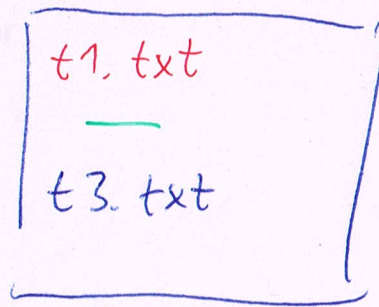 t1. txt
t3. txt